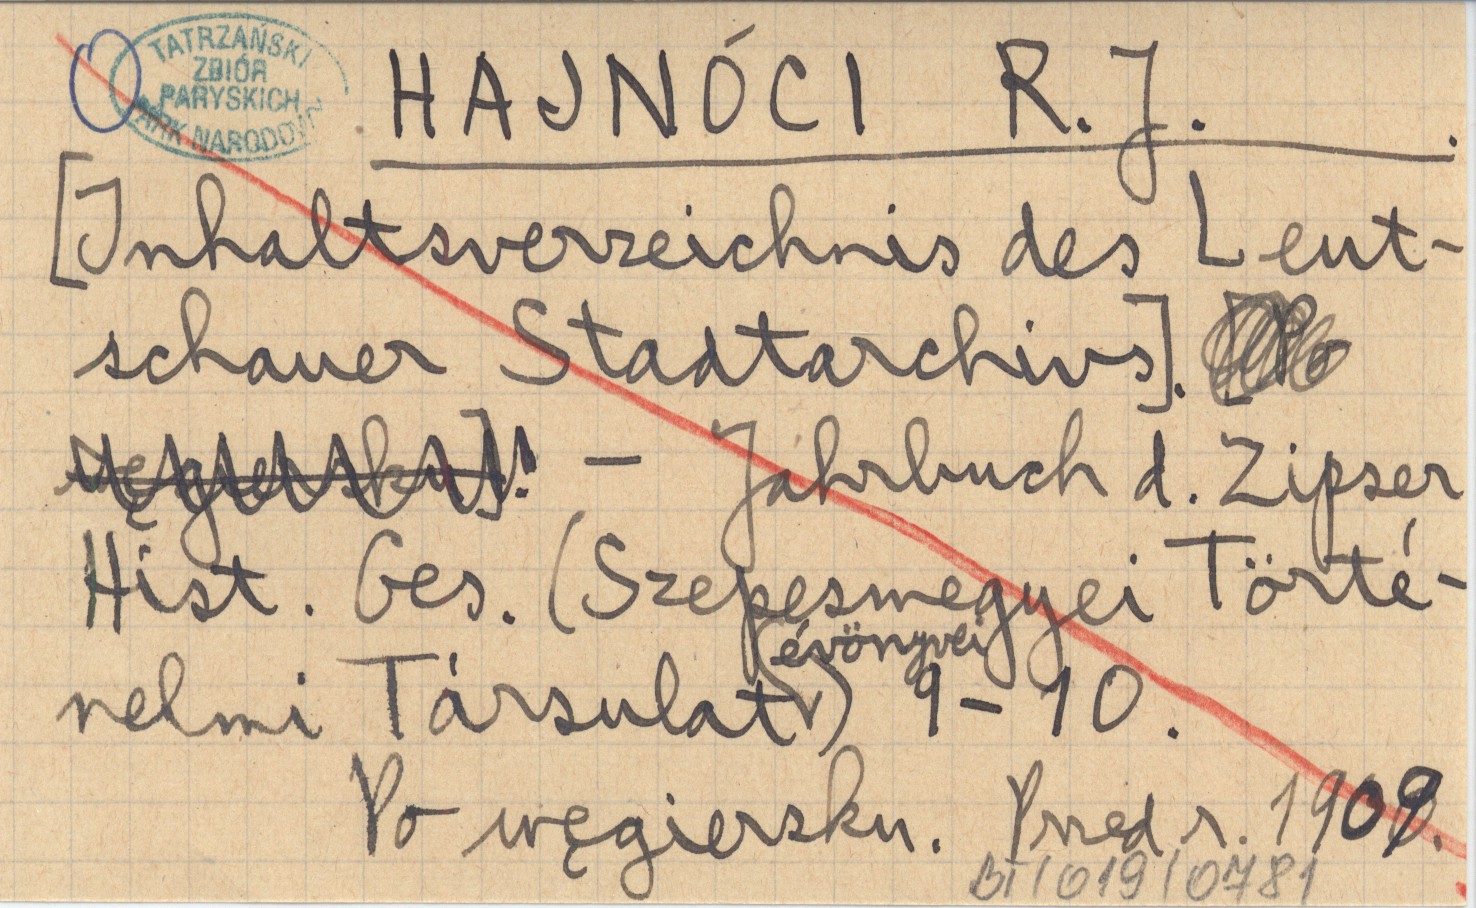 TATRZAŃSKI
ZBIÓR
PARYSKICH
PARK NARODOWY
HAJNÓCI R. J.
[Inhaltsverzeichnis des Leut-
schauer Stadtarchivs]. [Po
węgiersku]. — Jahrbuch d. Zipser
Hist. Ges. (Szepesmegyei Törté-
nelmi Társulat évönyvei) 9-10.
Po węgiersku. Przed r. 1909.
BT/019/0781